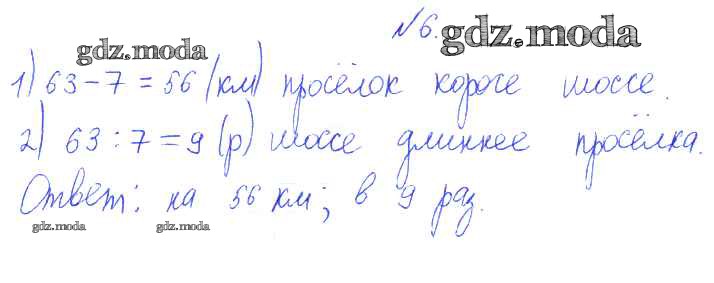 №6. gdz.moda
gdz.moda
1) 63-7=56 (км) просёлок короче шоссе.
2) 63:7=9 (р) шоссе длиннее просёлка.
Ответ: на 56 км; в 9 раз.
gdz.moda gdz.moda